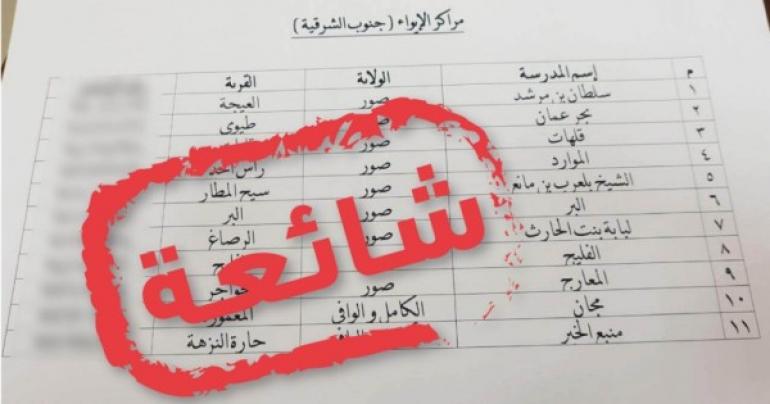 مراكز الإيواء (جنوب الشرقية)
م إسم المدرسة الولاية القرية
١ سلطان بن مرشد صور العيجة
٢ بحر عمان صور طيوي
٣ قلهات صور
٤ الموارد صور راس الحد
٥ الشيخ بلعرب بن مانع صور سيح المطار
٦ البر صور البر
٧ لبابة بنت الحارث صور الرصاغ
٨ الفليج
٩ المعارج صور
١٠ مجان الكامل و الوافي
١١ منبع الخير حارة النزهة
شائعة